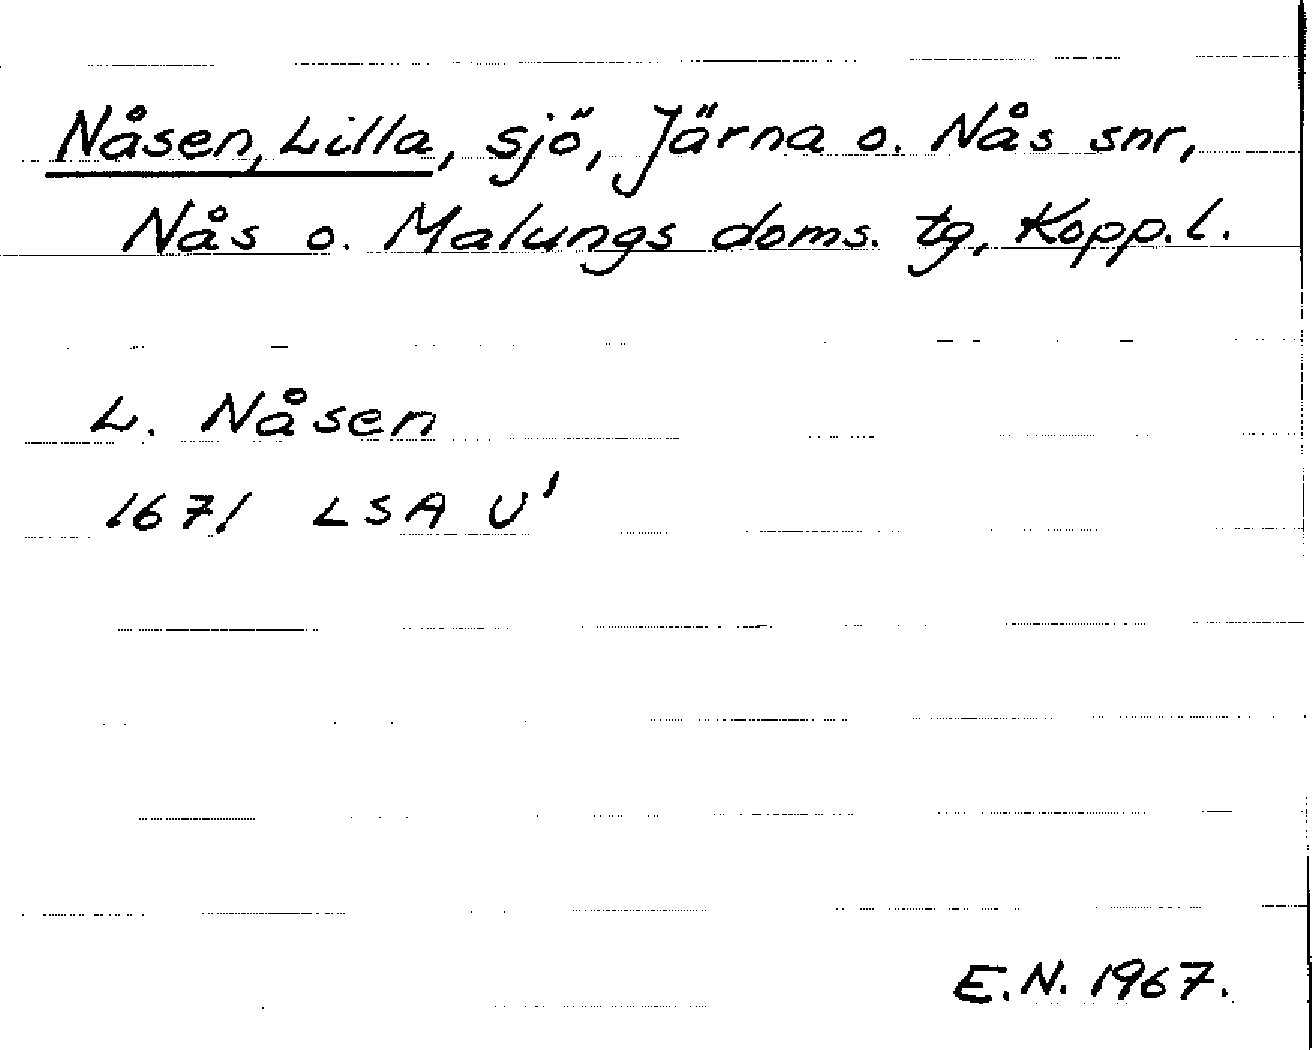 Nåsen, Lilla, sjö, Järna o. Nås snr,
Nås o. Malungs doms. tg, Kopp. l.
L. Nåsen
1671 LSA U'
E.N. 1967.